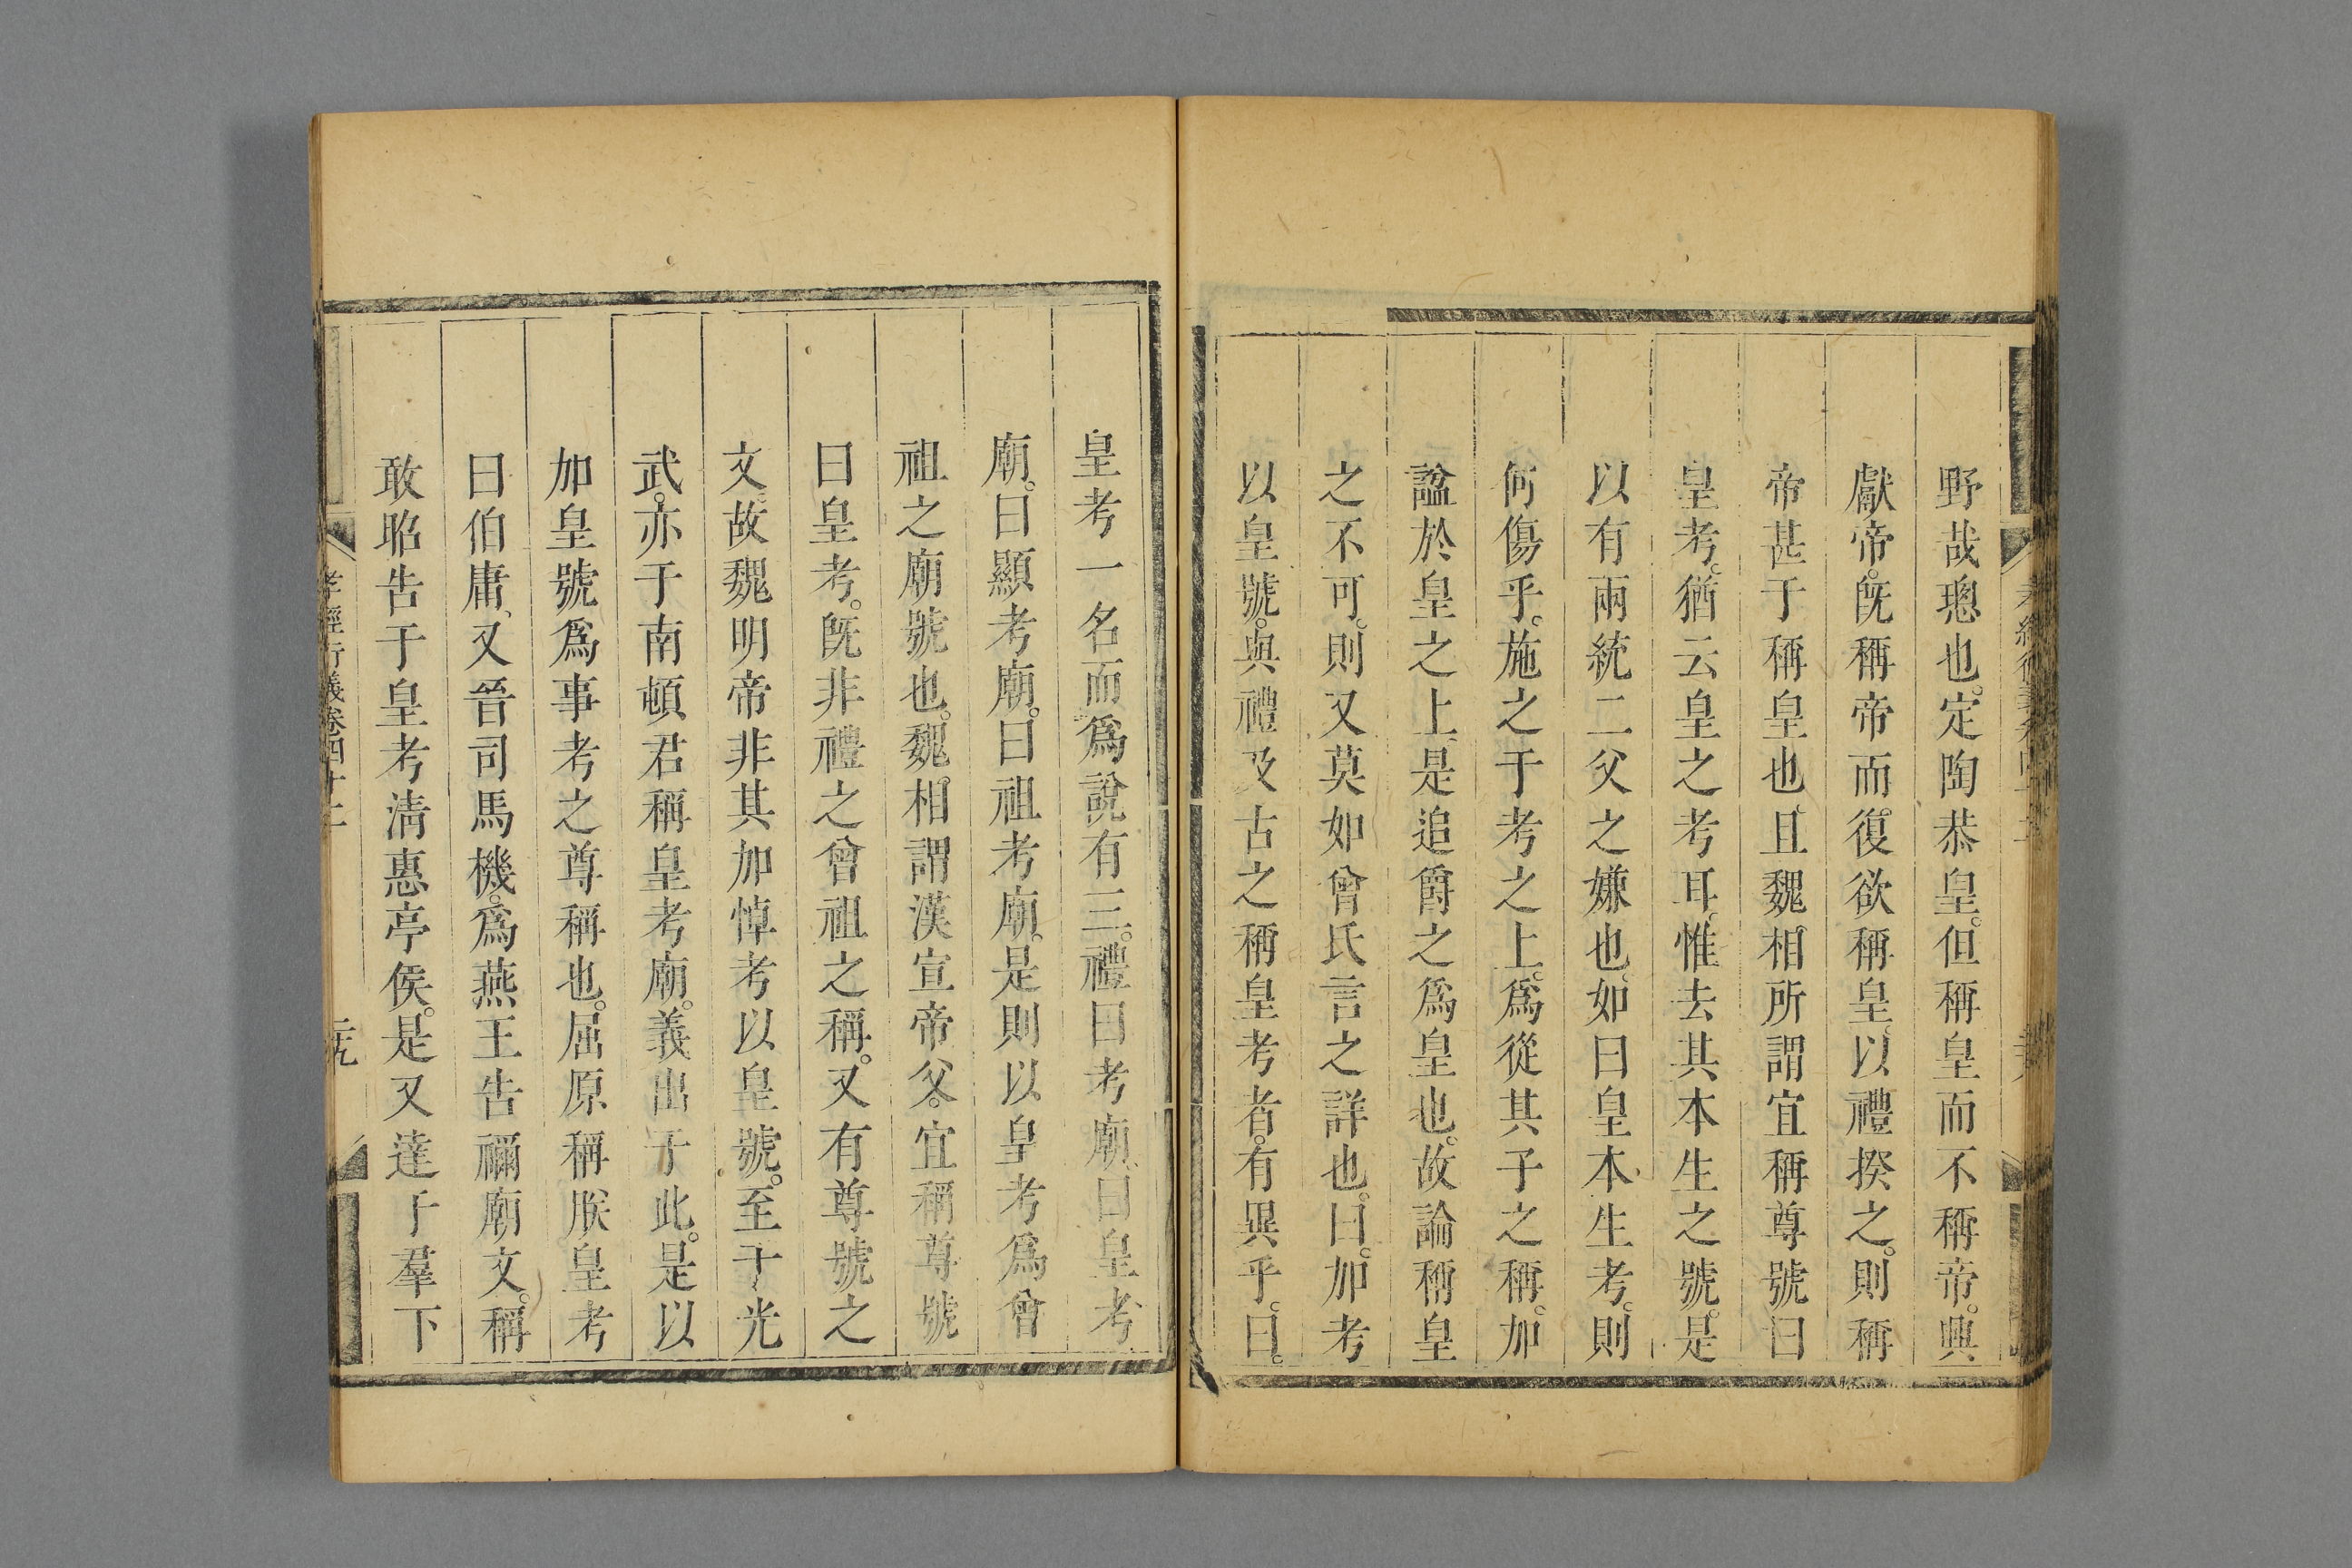 野哉璁也。定陶恭皇。但稱皇而不稱帝。興
獻帝。旣稱帝而復欲稱皇。以禮揆之。則稱
帝甚于稱皇也。且魏相所謂宜稱尊號曰
皇考。猶云皇之考耳。惟去其本生之號。是
以有兩統二父之嫌也。如曰皇本生考。則
何傷乎。施之于考之上。爲從其子之稱。加
諡於皇之上。是追爵之爲皇也。故論稱皇
之不可。則又莫如曾氏言之詳也。曰。加考
以皇號。與禮及古之稱皇考者。有異乎。曰。
皇考一名而爲說有三。禮曰考廟。曰皇考
廟。曰顯考廟。曰祖考廟。是則以皇考爲曾
祖之廟號也。魏相謂漢宣帝父。宜稱尊號
曰皇考。旣非禮之曾祖之稱。又有尊號之
文。故魏明帝非其加悼考以皇號。至于光
武。亦于南頓君稱皇考廟。義出于此。是以
加皇號爲事考之尊稱也。屈原稱朕皇考
曰伯庸、又晉司馬機。爲燕王告禰廟文。稱
敢昭告于皇考淸惠亭侯。是又達于羣下
孝經衍義卷四十二